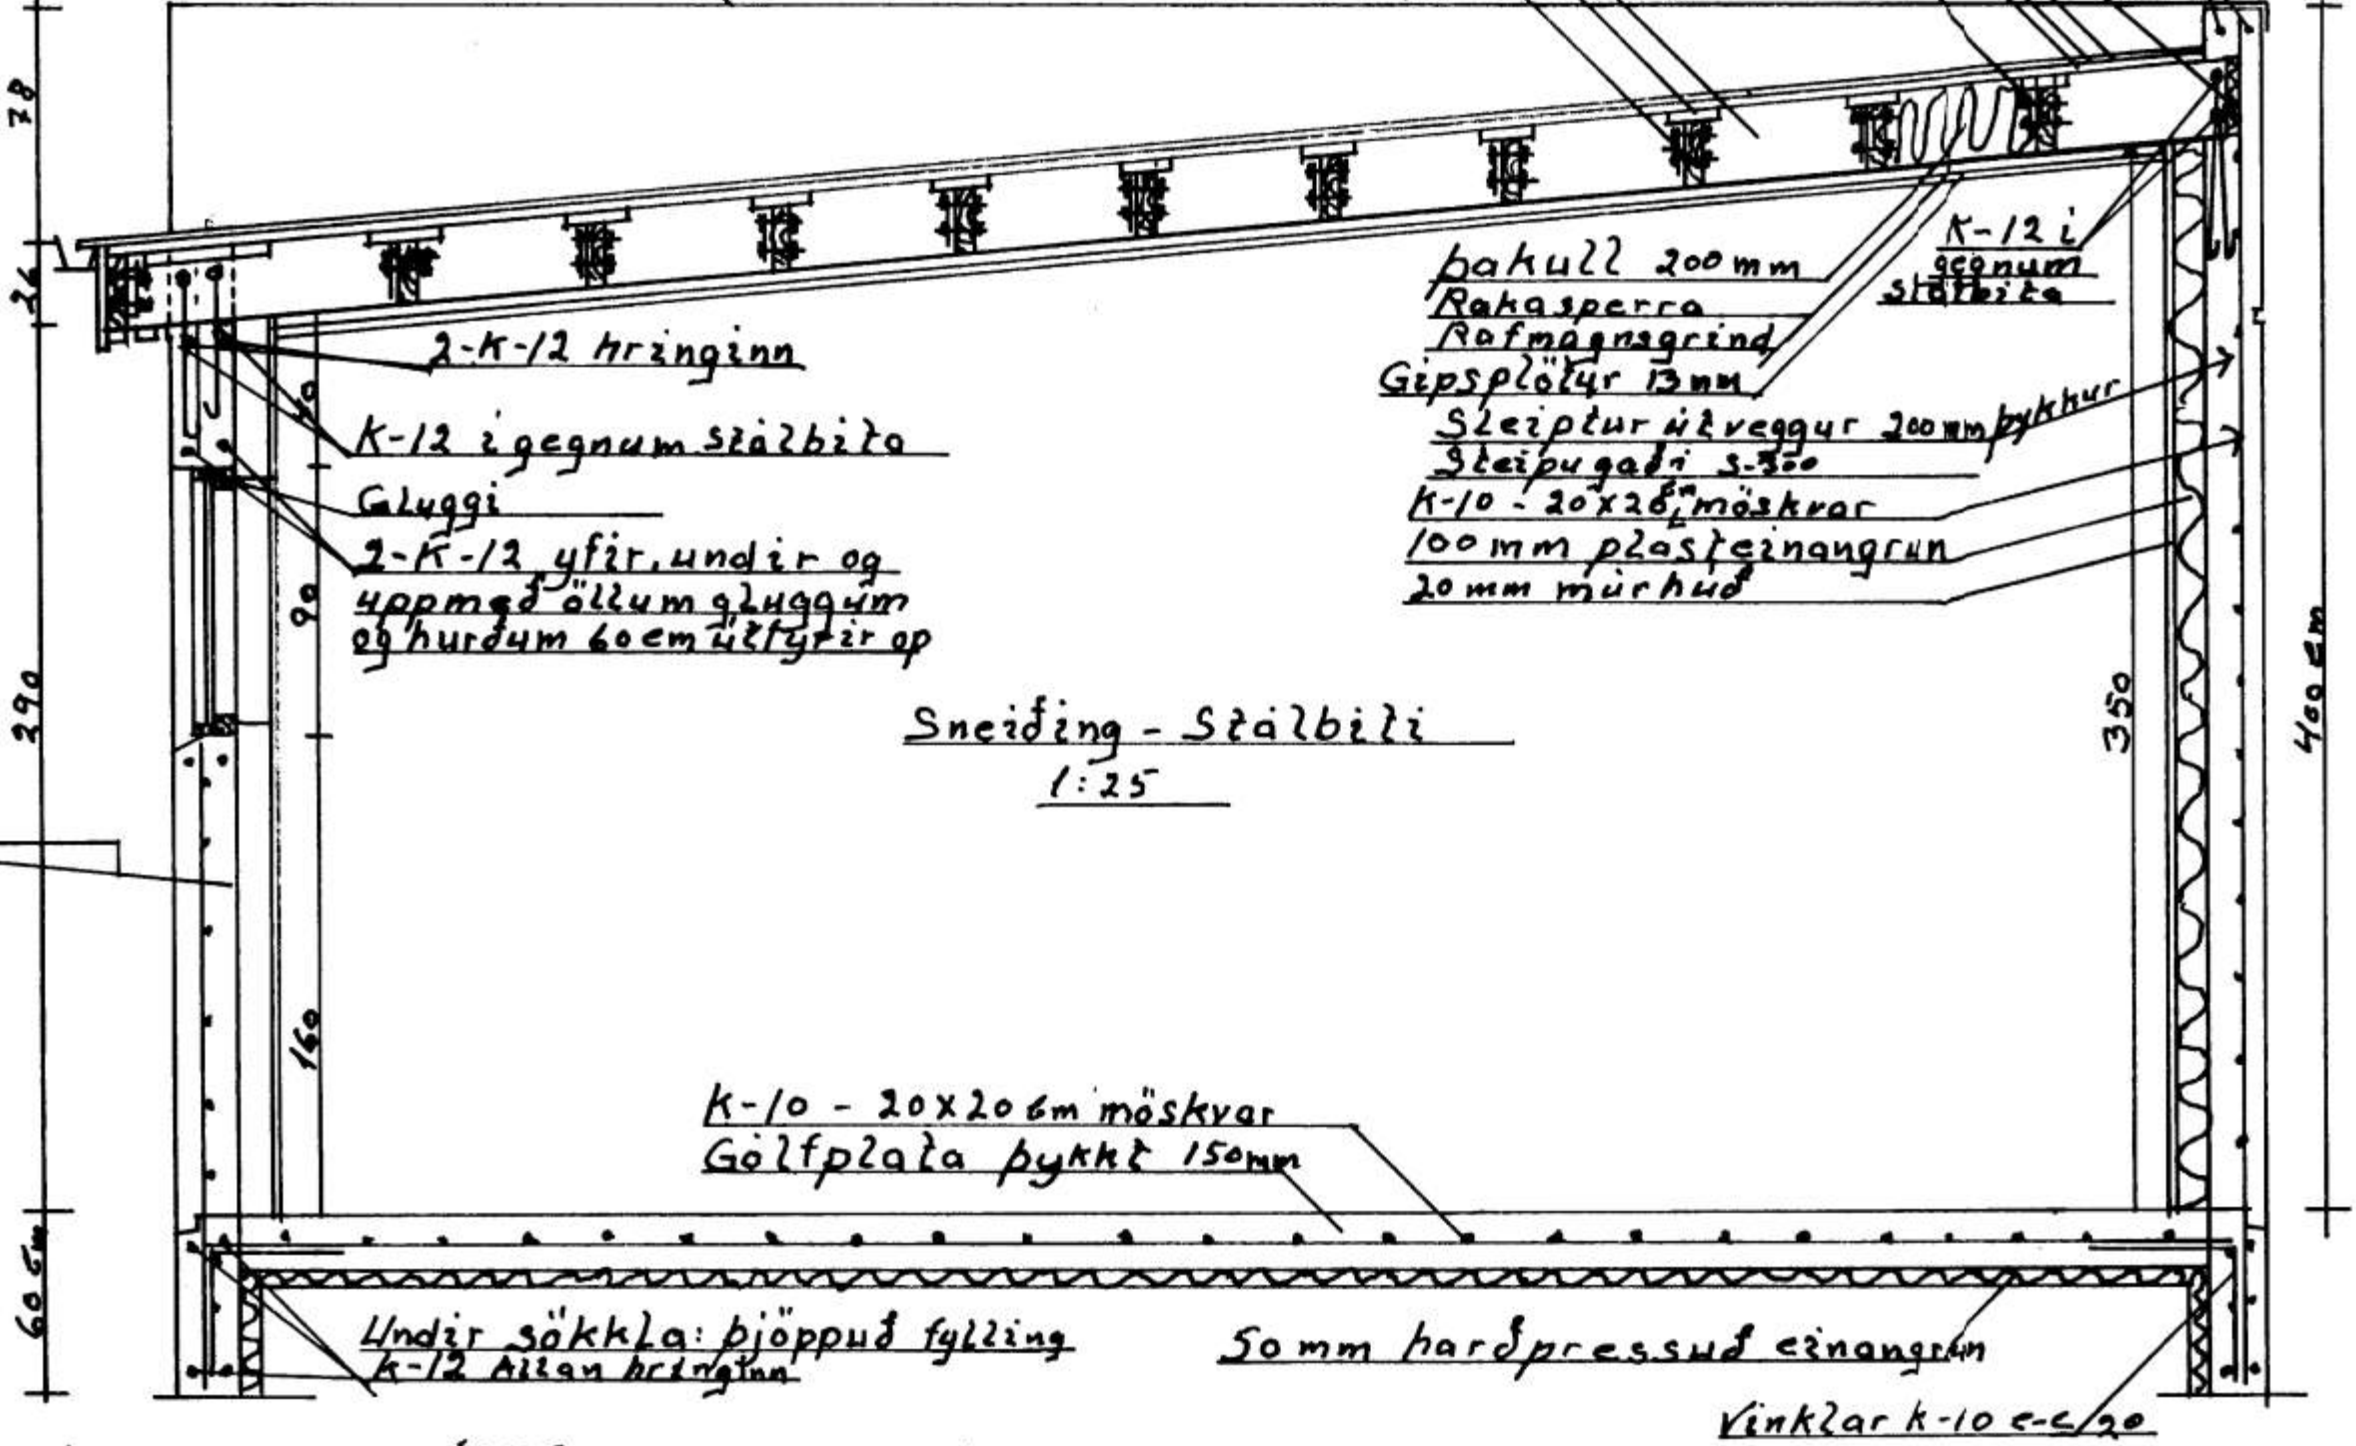 78
26
290
60 cm
2-K-12 hringinn
K-12 í gegnum stálbita
Gluggi
2-K-12 yfir, undir og
uppmeð öllum gluggum
og hurðum 60cm útfyrir op
40
90
160
þakull 200mm
Rakasperra
Rafmagnsgrind
Gipsplötur 13mm
K-12 í
gegnum
stálbita
Steiptur útveggur 200mm þykkur
Steipugæði S-300
K-10 - 20x20cm möskvar
100mm plasteinangrun
20mm múrhúð
Sneiðing - Stálbiti
1:25
350
400 cm
K-10 - 20x20 cm möskvar
Gólfplata þykkt 150mm
Undir sökkla: þjöppuð fylling
K-12 Allan hringinn
50mm harðpressuð einangrun
Vinklar K-10 c-c/20